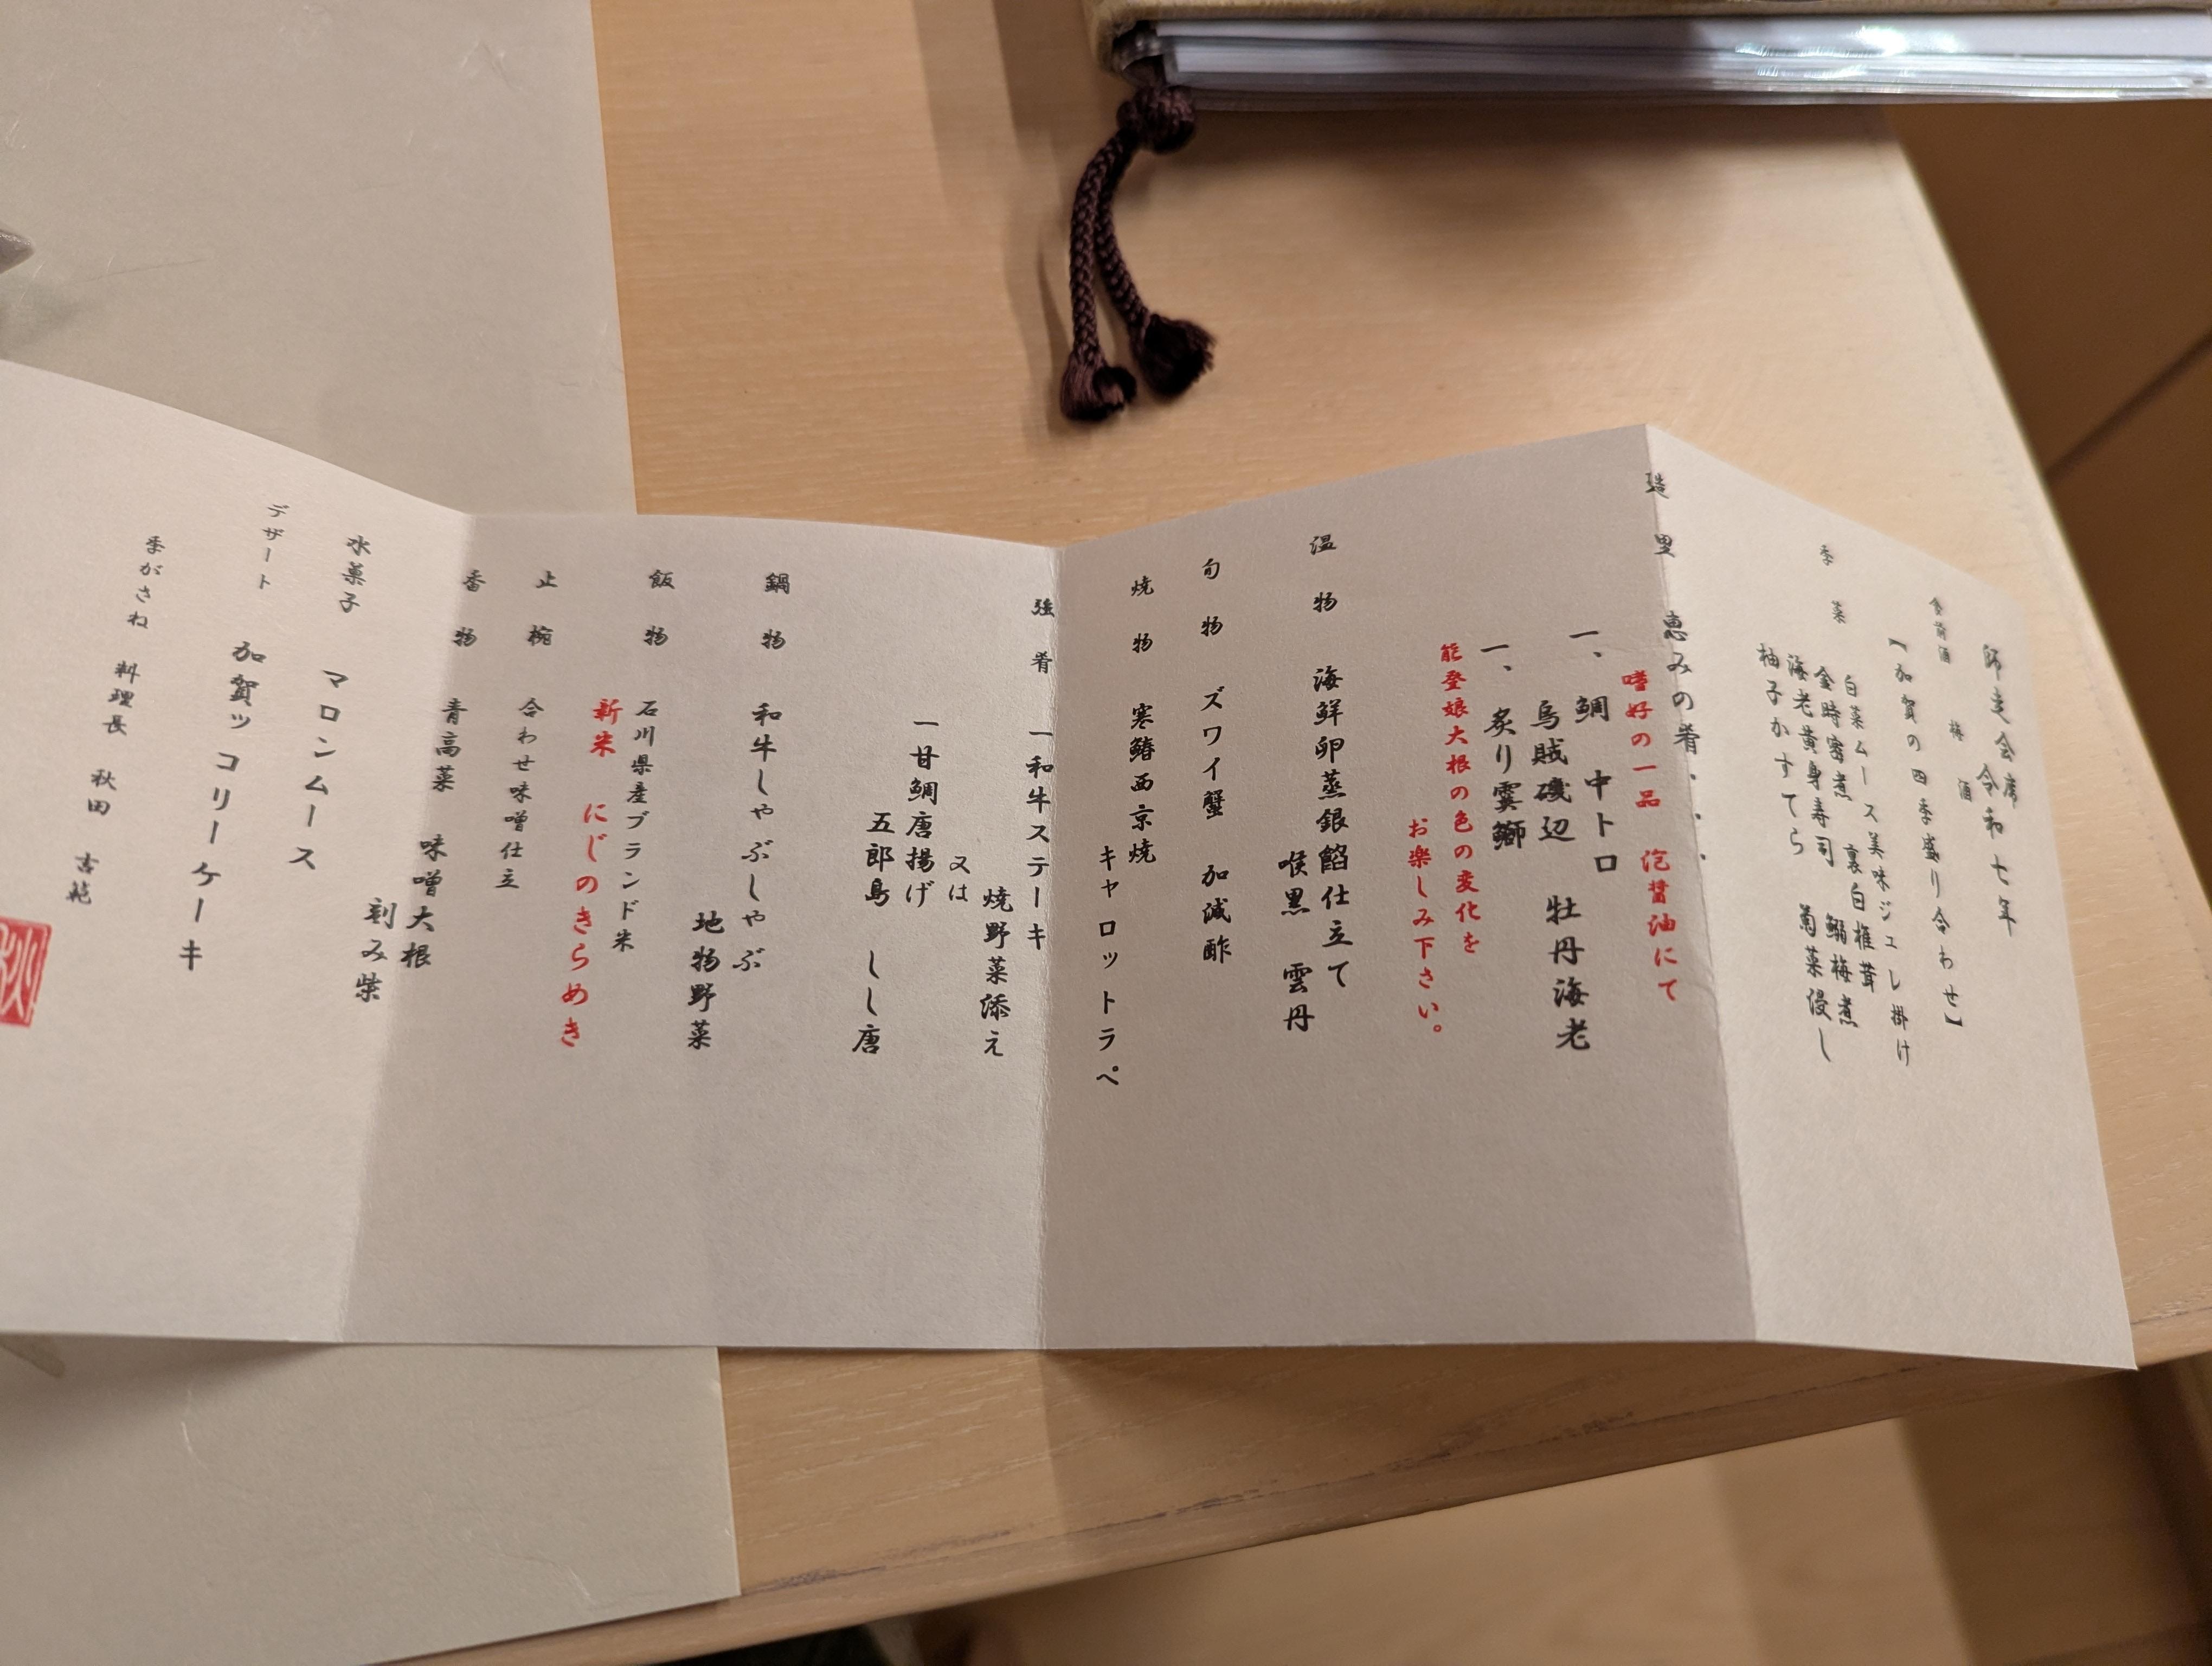 師走会席 令和七年
食前酒 梅酒
【加賀の四季盛り合わせ】
季菜 白菜ムース美味ジュレ掛け
金時蜜煮 裏白椎茸
海老黄身寿司 鰯梅煮
柚子かすてら 菊菜浸し
造里 恵みの肴・・・・
嗜好の一品 泡醤油にて
一、鯛 中トロ
烏賊磯辺 牡丹海老
一、炙り寒鰤
能登娘大根の色の変化を
お楽しみ下さい。
温物 海鮮卵蒸銀餡仕立て
喉黒 雲丹
旬物 ズワイ蟹 加減酢
焼物 寒鰆西京焼
キャロットラペ
強肴 一和牛ステーキ
焼野菜添え
又は
一甘鯛唐揚げ
五郎島 しし唐
鍋物 和牛しゃぶしゃぶ
地物野菜
飯物 石川県産ブランド米
新米 にじのきらめき
止椀 合わせ味噌仕立
香物 青高菜 味噌大根
刻み柴
水菓子 マロンムース
デザート 加賀ッコリーケーキ
季がさね 料理長 秋田